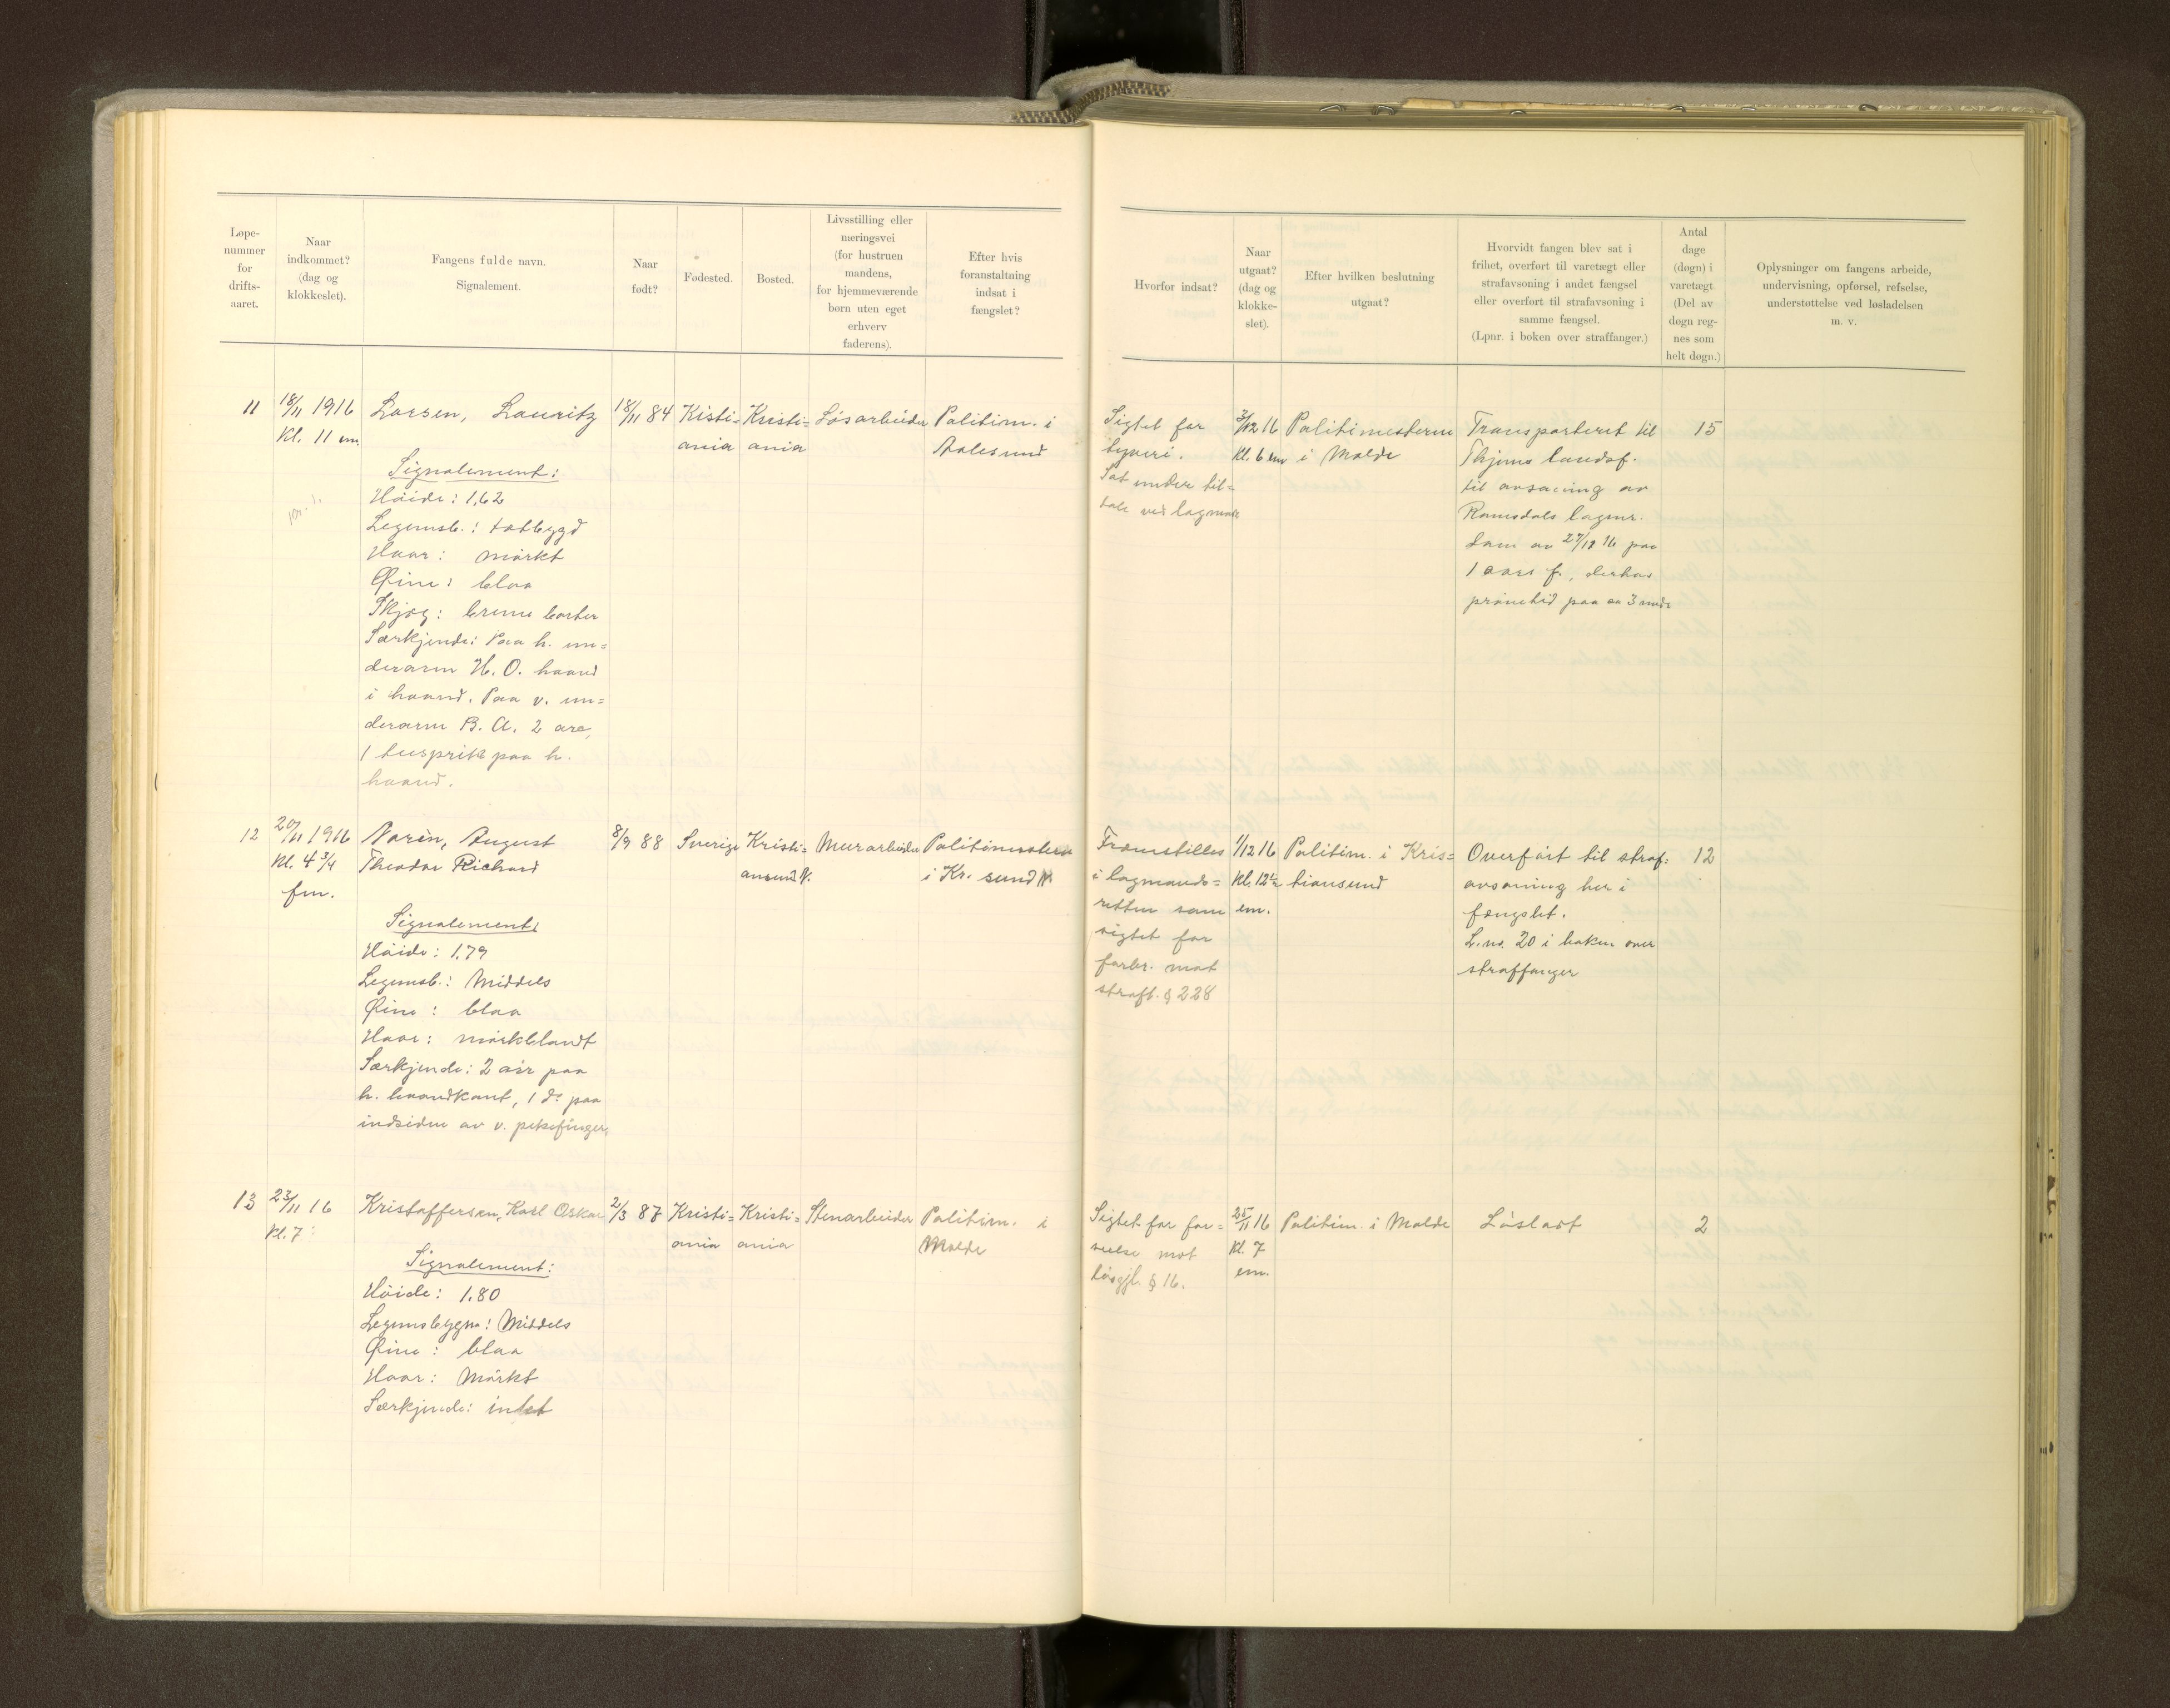 Løpe-
nummer
for
drifts-
aaret.
Naar
indkommet?
(dag og
klokkeslet).
Fangens fulde navn.
Signalement.
Naar
født?
Fødested.
Bosted.
Livsstilling eller
næringsvei
(for hustruen
mandens,
for hjemmeværende
børn uten eget
erhverv
faderens).
Efter hvis
foranstaltning
indsat i
fængslet?
Hvorfor indsat?
Naar
utgaat?
(dag og
klokke-
slet).
Efter hvilken beslutning
utgaat?
Hvorvidt fangen blev sat i
frihet, overført til varetægt eller
strafavsoning i andet fængsel
eller overført til strafavsoning i
samme fængsel.
(Lpnr. i boken over straffanger.)
Antal
dage
(døgn) i
varetægt.
(Del av
døgn reg-
nes som
helt døgn.)
Oplysninger om fangens arbeide,
undervisning, opførsel, refselse,
understøttelse ved løsladelsen
m. v.
11
18/11 1916
Kl. 11 em
Larsen, Lauritz
Signalement:
Höide: 1,62
Legemsb.: tætbygd
Haar: mörkt
Øine: blaa
Skjæg: brune barter
Særkjende: Paa h. un=
derarm H. O. haand
i haand. Paa v. un=
derarm B. A. 2 arr,
1 tusprik paa h.
haand.
18/11 84
Kisti=
ania
Kristi=
ania
Lösarbeider
Politim. i
Aalesund
Sigtet for
tyveri.
Sat under til=
tale ved lagmr
3/12 16
Kl. 6 em
Politimesteren
i Molde
Transporteret til
Skjerns landsf.
til avsoning av
Romsdals lagmr.
dom av 27/11 16 paa
1 aars f., derhos
prövetid paa 3 mdr
15
12
20/11 1916
Kl. 4 3/4
fm.
Norèn, August
Theodor Richard
Signalement:
Höide: 1.79
Legemsb.: Middels
Øine: blaa
Haar: mörkblandt
Særkjende: 2 arr paa
h. haandkant, 1 do paa
indsiden av v. pekefinger.
8/9 88
Sverige
Kristi=
ansund N.
Murarbeider
Politimesteren
i Kr. sund N.
Fremstilles
i lagmands=
retten som
sigtet for
forbr. mot
strafl. § 228
1/12 16
Kl. 12½
em.
Politim. i Kris=
tiansund
Overfört til straf=
avsoning her i
fængslet.
L. no. 20 i boken over
straffanger
12
13
23/11 16
Kl. 7
Kristoffersen, Karl Oskar
Signalement:
Höide: 1.80
Legemsbygn: Middels
Øine: blaa
Haar: Mörkt
Særkjende: intet
2/3 87
Kristi=
ania
Kristi=
ania
Stenarbeider
Politim. i
Molde
Sigtet for for=
seelse mot
lösgjl. § 16.
25/11 16
Kl. 7
em.
Politim. i Molde
Löslatt
2